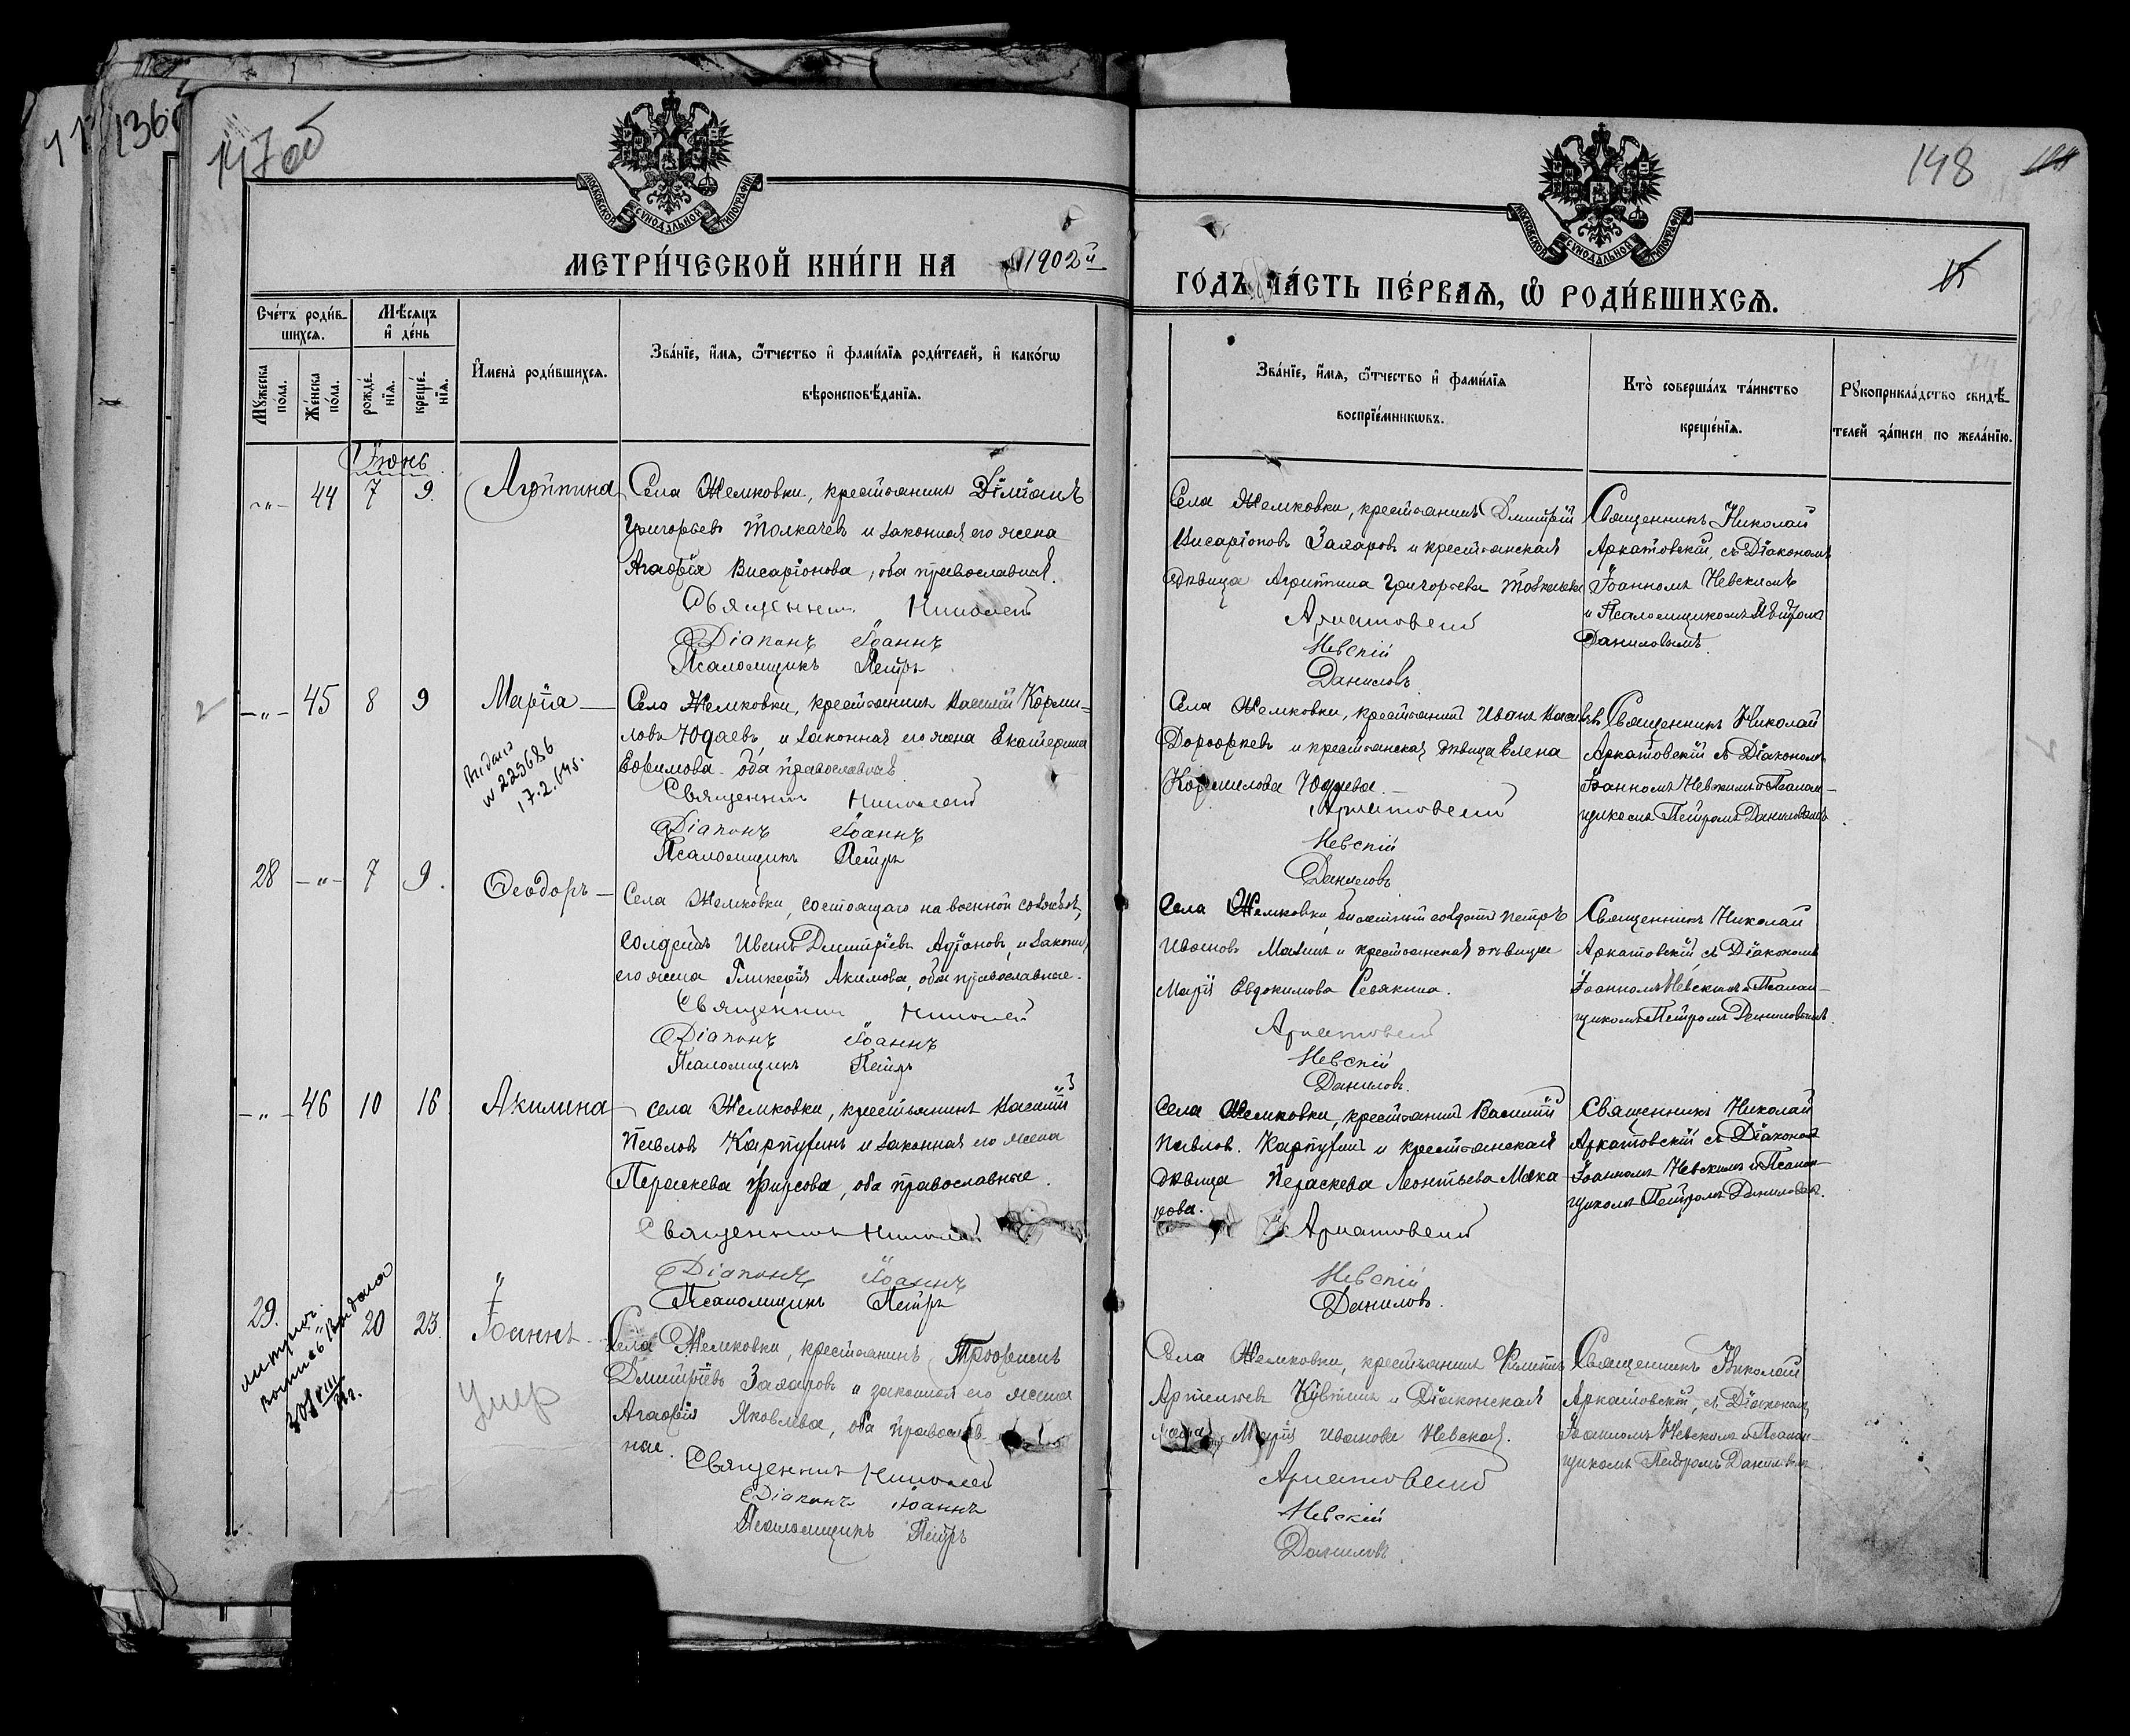 147об
148
МЕТРИ́ЧЕСКОЙ КНИ́ГИ НА 1902й
ГОДЪ ЧА́СТЬ ПЕ́РВАѦ, Ѽ РОДИ́ВШИХСѦ.
Сче́тъ роди́в-
шихся.
Мѣ́сяцъ
и́ де́нь
Мꙋ́жеска
по́ла.
Же́нска
по́ла.
рожде́-
нїя.
креще́-
нїя.
И҆мена̀ роди́вшихся.
Зва́нїе, и҆́мя, ѻ҆́тчество и҆ фами́лїя роди́телей, и҆ како́гѡ
вѣроисповѣ́данїя.
Зва́нїе, и҆́мя, ѻ҆́тчество и҆ фами́лїя
воспрїе́мникѡвъ.
Кто̀ соверша́лъ та́инство
креще́нїя.
Рꙋкоприкла́дство свидѣ́-
телей за́писи по жела́нїю.
Іюнь
-"- 44 7 9. Агриппина
Села Жемковки, крестьянинъ
Григорьевъ Толкачевъ и законная его жена
Агаѳія Висаріонова, оба православныя.
Священникъ Николай
Діаконъ Іоаннъ
Псаломщикъ Петръ
Села Жемковки, крестьянинъ Дмитрій
Висаріоновъ Захаровъ и крестьянская
дѣвица Агриппина Григорьева
Аркатовскій
Невскій
Даниловъ
Священникъ Николай
Аркатовскій, съ Діакономъ
Іоанномъ Невскимъ
и Псаломщикомъ Петромъ
Даниловымъ.
-"- 45 8 9 Марія
Выдано
№ 225686
17.2.
Села Жемковки, крестьянинъ Василій Корми-
ловъ Юдаевъ и законная его жена Екатерина
Ефимова оба православные
Священникъ Николай
Діаконъ Іоаннъ
Псаломщикъ Петръ
Села Жемковки, крестьянинъ Иванъ Васильевъ
Дорофеевъ и крестьянская дѣвица Елена
Кормилова Юдаева.
Аркатовскій
Невскій
Даниловъ
Священникъ Николай
Аркатовскій съ Діакономъ
Іоанномъ Невскимъ и Псалом-
щикомъ Петромъ Даниловымъ.
28 -"- 7 9. Ѳеодоръ
Села Жемковки, состоящаго на военной службѣ,
солдатъ Иванъ Дмитріевъ Адріановъ, и законн.
его жена Гликерія Акимова, оба православные.
Священникъ Николай
Діаконъ Іоаннъ
Псаломщикъ Петръ
Села Жемковки, билетный солдатъ Петръ
Ивановъ и крестьянская дѣвица
Марія Евдокимова Севякина.
Аркатовскій
Невскій
Даниловъ.
Священникъ Николай
Аркатовскій, съ Діакономъ
Іоанномъ Невскимъ и Псалом-
щикомъ Петромъ Даниловымъ.
-"- 46 10 16 Акилина
села Жемковки, крестьянинъ Василій
Павловъ Карпухинъ и законная его жена
Параскева Фирсова, оба православные.
Священникъ Николай
Діаконъ Іоаннъ
Псаломщикъ Петръ
Села Жемковки, крестьянинъ Василій
Павлов. Карпухинъ и крестьянская
дѣвица Параскева Леонтьева Мака-
рова.
Аркатовскій
Невскій
Даниловъ.
Священникъ Николай
Аркатовскій съ Діакономъ
Іоанномъ Невскимъ и Псалом-
щикомъ Петромъ Даниловым.
29. " 20 23. Іоаннъ
Умер
Села Жемковки, крестьянинъ Трофимъ
Дмитріевъ Захаровъ и законная его жена
Агаѳія Яковлева, оба православ-
ные.
Священникъ Николай
Діаконъ Іоаннъ
Псаломщикъ Петръ
Села Жемковки, крестьянинъ Филиппъ
и Діаконская
Марія Иванова Невская.
Аркатовскій
Невскій
Даниловъ.
Священникъ Николай
Аркатовскій, съ Діакономъ
Іоанномъ Невскимъ и Псалом-
щикомъ Петромъ Даниловым.